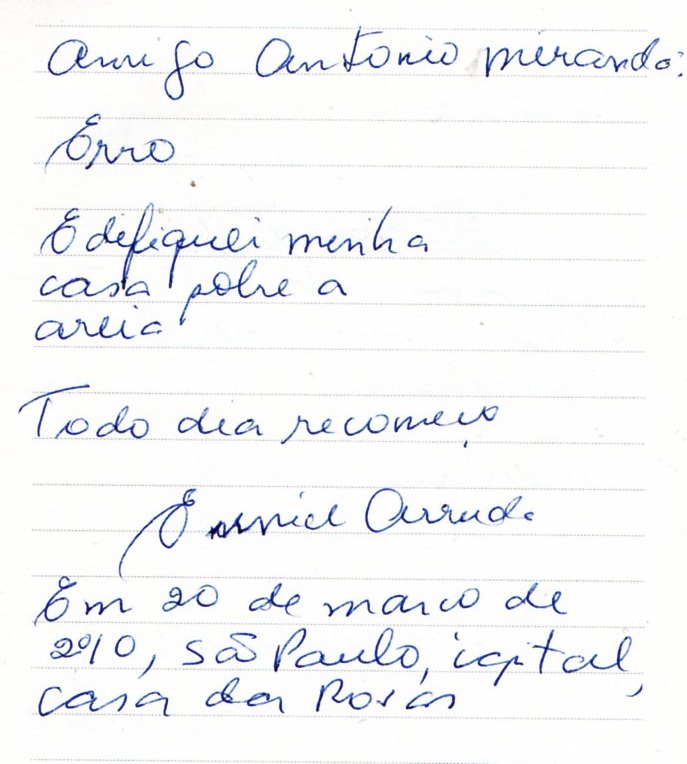 Amigo Antonio Miranda:
Erro
Edifiquei minha
casa sobre a
areia
Todo dia recomeço
Eunice Arruda
Em 20 de março de
2010, São Paulo, capital,
Casa das Rosas